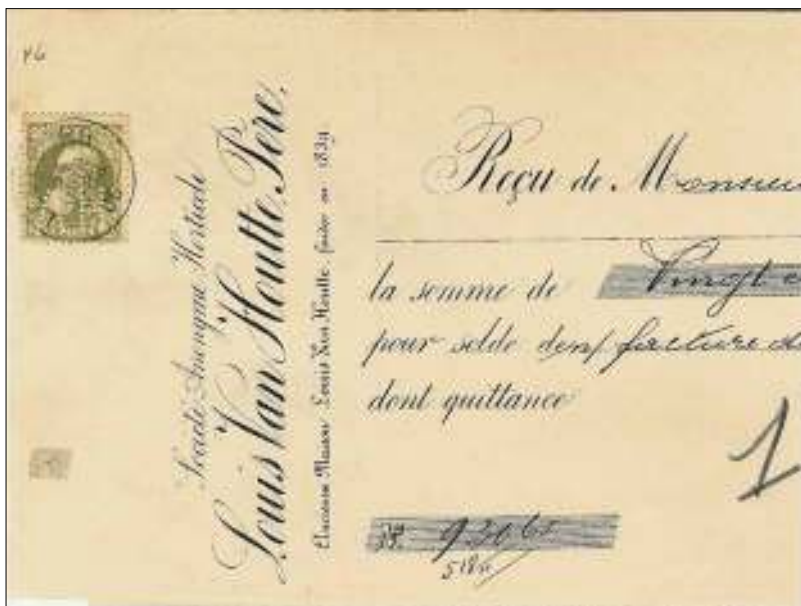 46
Société Anonyme Horticole
Louis Van Houtte, Père.
Ancienne Maison Louis Van Houtte, fondée en 1839
Reçu de Monsieu
la somme de Vingt
pour solde de n/ facture d
dont quittance
1